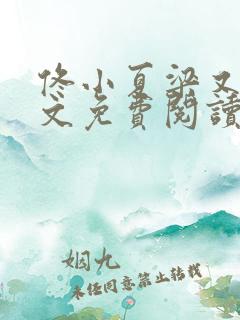 佟小夏梁又
文免費閱讀
姻九
未经同意禁止转载